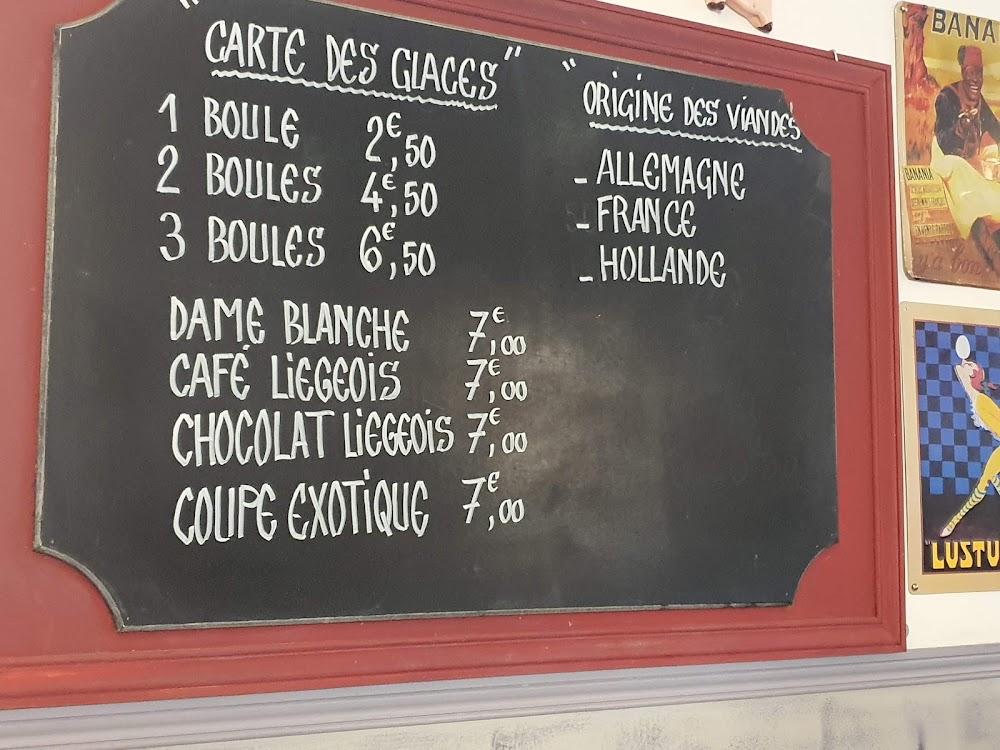 "CARTE DES GLACES"
1 BOULE 2€,50
2 BOULES 4€,50
3 BOULES 6€,50
DAME BLANCHE 7€,00
CAFÉ LIEGEOIS 7€,00
CHOCOLAT LIEGEOIS 7€,00
COUPE EXOTIQUE 7€,00
"ORIGINE DES VIANDES"
- ALLEMAGNE
- FRANCE
- HOLLANDE
BANA
BANANIA
y'a bon
"LUSTU